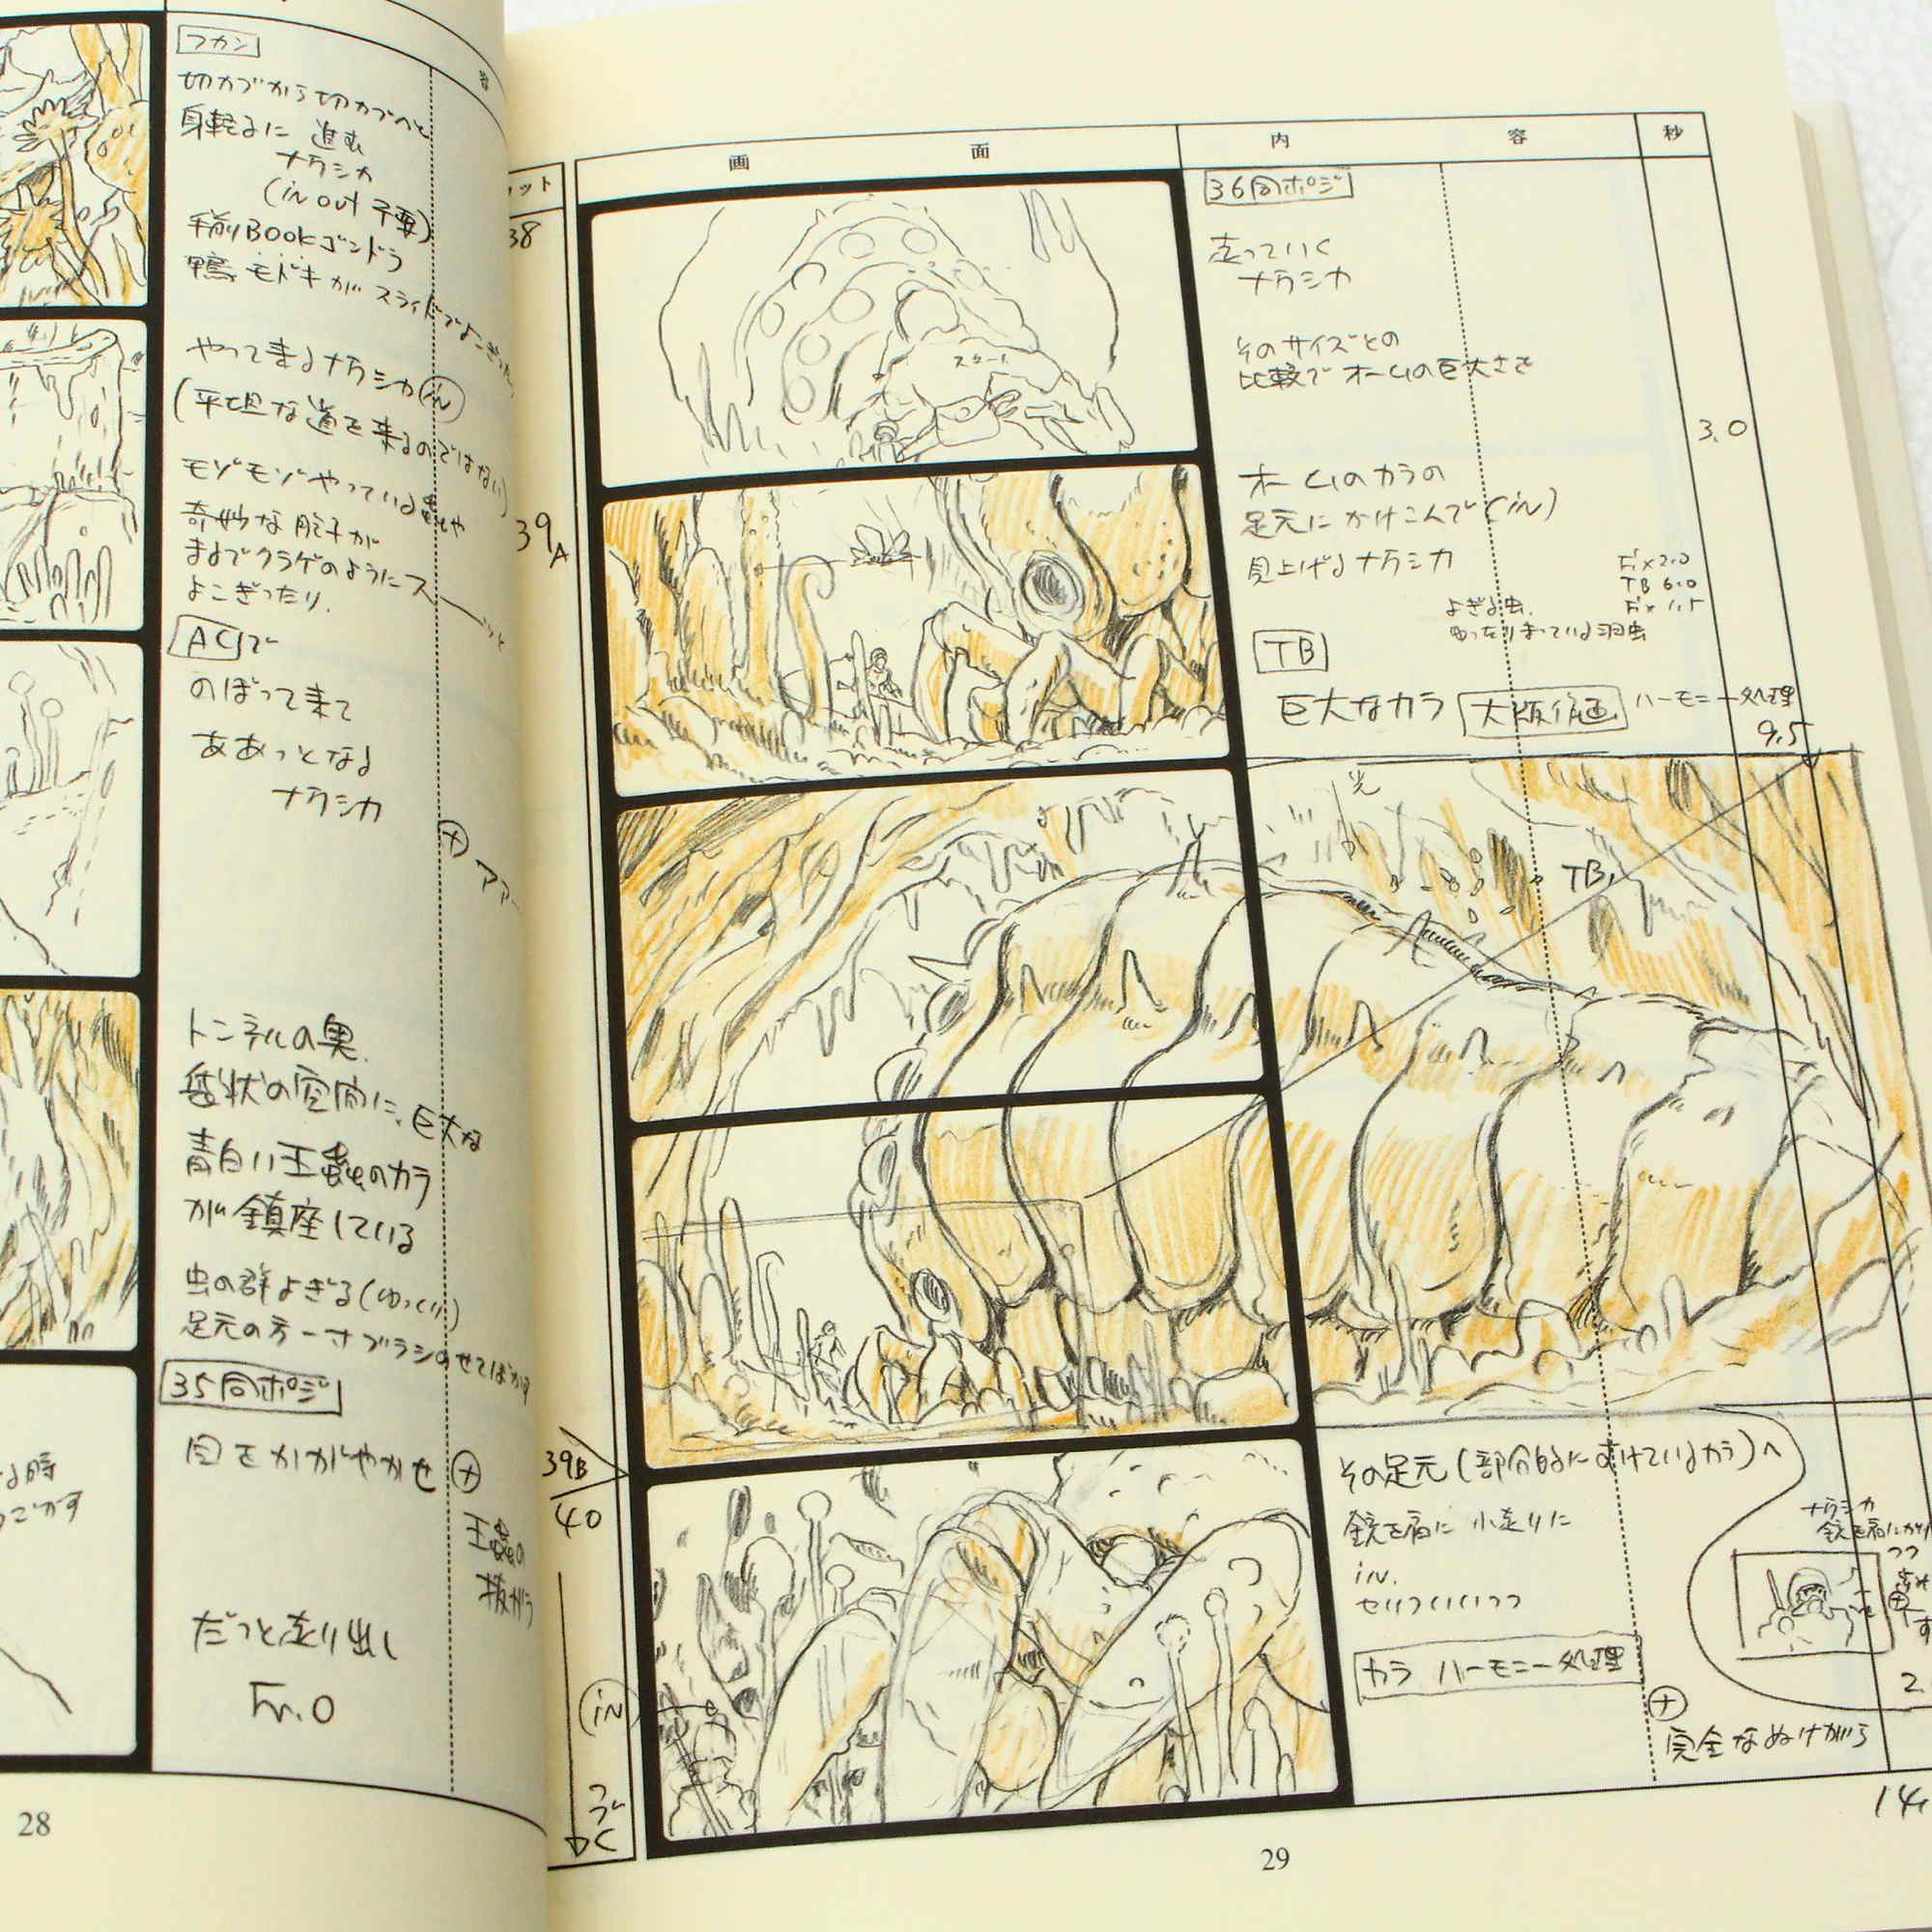 容
フカン
切カブから切カブへと
身軽るに 進む
ナウシカ
(in out 不要)
手前りBOOKゴンドラ
鴨モドキがスライドでよこぎったり
やって来るナウシカ in
(平坦な道を来るのではない)
モゾモゾやっている蟲や
奇妙な胞子が
まるでクラゲのようにスーーッと
よこぎったり.
ACで
のぼって来て
ああっとなる
ナウシカ
ナ アア…
トンネルの奥.
状の空間に、巨大な
青白い王蟲のカラ
が鎮座している
虫の群よぎる(ゆっくり)
足元の方
35同ポジ
目をかがやかせ
ナ
王蟲の
抜がら
だっと走り出し
Fr.O
る時
28
カット
画面
内容
秒
38
スタート
36同ポジ
走っていく
ナウシカ
そのサイズとの
比較でオームの巨大さを
3.0
39A
オームのカラの
足元にかけこんで(in)
見上げるナウシカ
Fix2.0
TB 6.0
Fix 1.5
よぎる虫.
ゆったりまっている羽虫
TB
巨大なカラ 大版作画 ハーモニー処理
9.5
光
TB.
39B
40
その足元(部分的にすけているカラ)へ
銃を肩に 小走りに
in.
せいっいいいっっ
ナウシカ
銃を肩にかけ
つつ
カラ ハーモニー処理
ナ
完全なぬけがら
2.
in
つづく
14.
29